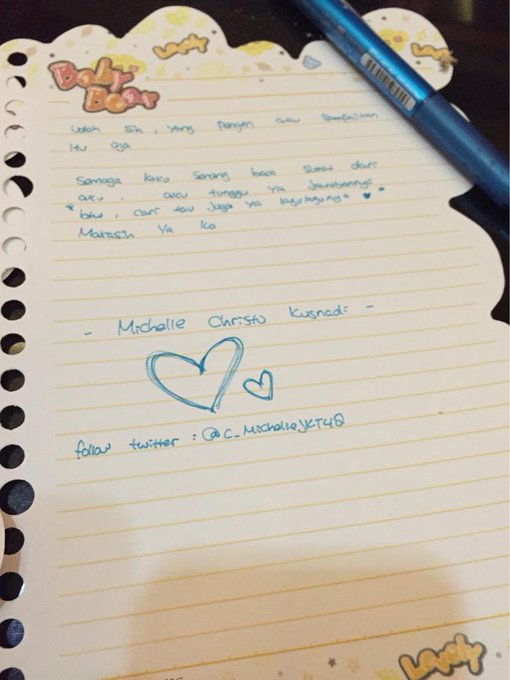 Lovely
Lovely
Baby
Bear
Udah sih, yang pengen aku sampaikan
itu aja
Semoga koko senang baca surat dari
aku. aku tunggu ya jawabannya
* btw, cari tau juga ya lagu-lagunya
Makasih ya ko
- Michelle Christo Kusnadi -
follow twitter : @C_MichelleJKT48
Lovely